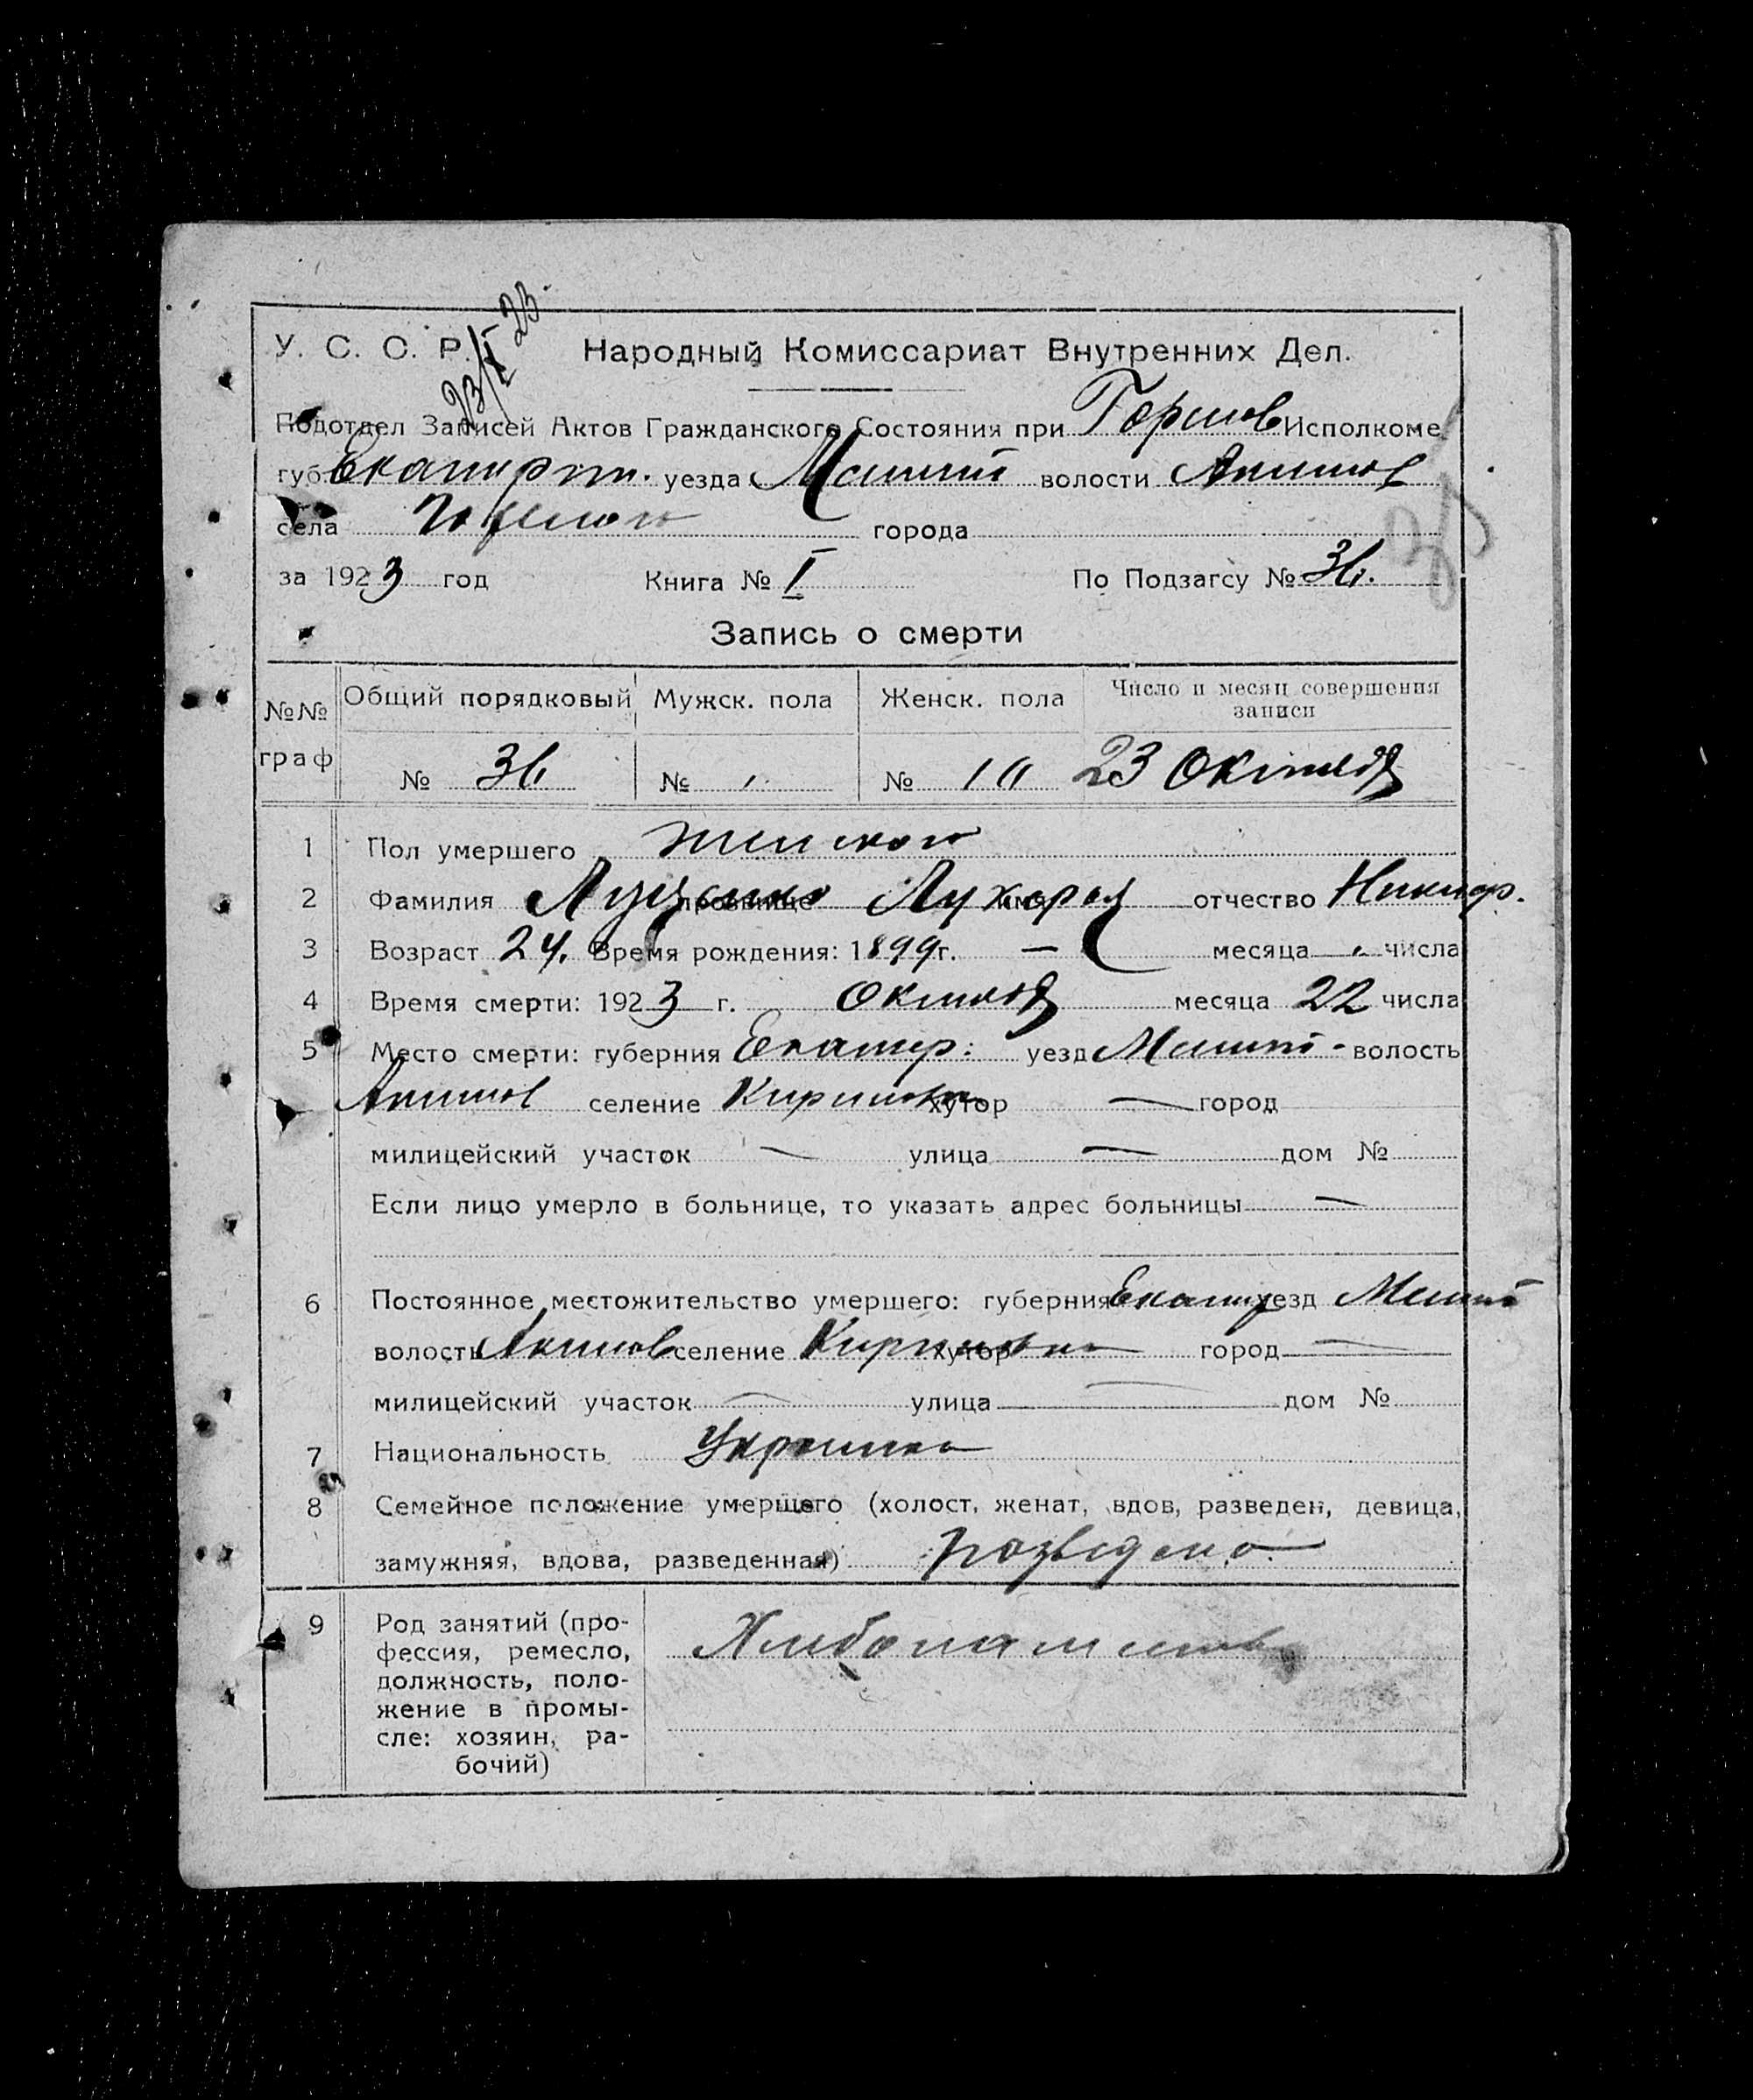 У. С. С. Р. Народный Комиссариат Внутренних Дел.
Подотдел Записей Актов Гражданского Состояния при Исполкоме
губ. уезда волости Акимов
села города
за 1923 год Книга № I По Подзагсу № 36.
Запись о смерти
№№ граф Общий порядковый Мужск. пола Женск. пола Число и месяц совершения записи
№ 36 № № 23 Октября
1 Пол умершего женского
2 Фамилия прозвище имя отчество Никиф.
3 Возраст 24. Время рождения: 1899г. — месяца числа
4 Время смерти: 1923 г. Октября месяца 22 числа
5 Место смерти: губерния Екатер: уезд волость
Акимов селение хутор — город
милицейский участок — улица — дом №
Если лицо умерло в больнице, то указать адрес больницы —
6 Постоянное местожительство умершего: губерния уезд
волость Акимов селение хутор город —
милицейский участок — улица — дом №
7 Национальность Украинка
8 Семейное положение умершего (холост, женат, вдов, разведен, девица,
замужняя, вдова, разведенная) разведена
9 Род занятий (про-
фессия, ремесло,
должность, поло-
жение в промы-
сле: хозяин, ра-
бочий)